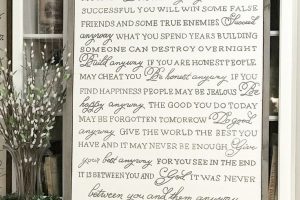 SUCCESSFUL YOU WILL WIN SOME FALSE
FRIENDS AND SOME TRUE ENEMIES Succeed
anyway WHAT YOU SPEND YEARS BUILDING
SOMEONE CAN DESTROY OVERNIGHT
Build anyway IF YOU ARE HONEST PEOPLE
MAY CHEAT YOU Be honest anyway IF YOU
FIND HAPPINESS PEOPLE MAY BE JEALOUS Be
happy anyway THE GOOD YOU DO TODAY
MAY BE FORGOTTEN TOMORROW Do good
anyway GIVE THE WORLD THE BEST YOU
HAVE AND IT MAY NEVER BE ENOUGH Give
your best anyway FOR YOU SEE IN THE END
IT IS BETWEEN YOU AND God IT WAS NEVER
between you and them anyway